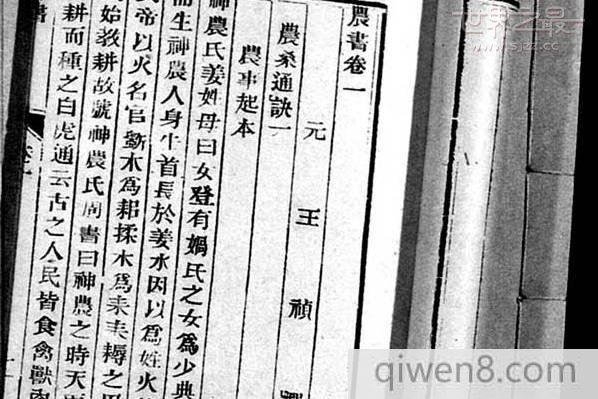 農書卷一
元 王 禎
農桑通訣一
農事起本
神農氏姜姓母曰女登有媧氏之女為少典
而生神農人身牛首長於姜水因以為姓火
帝以火名官斲木為耜揉木為耒耒耨之用
始教耕故號神農氏周書曰神農之時天雨
耕而種之白虎通云古之人民皆食禽獸肉
世界之最
www.sjzz.cc
qiwen8.com